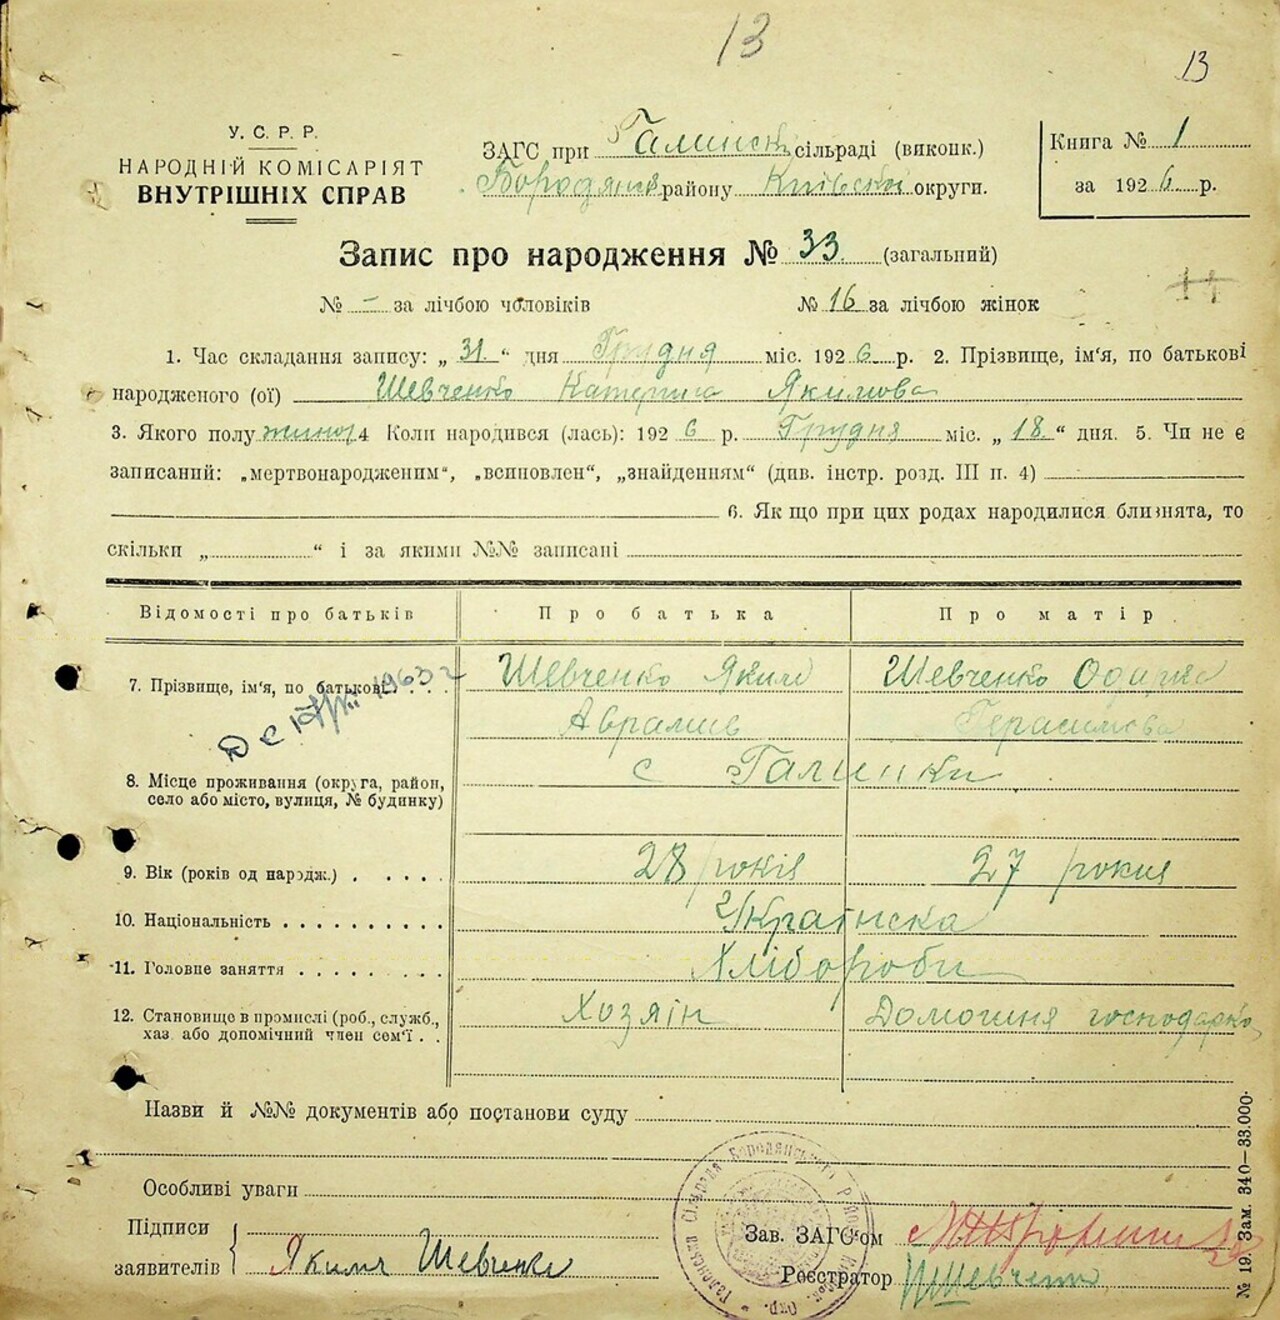 13
13
У. С. Р. Р.
НАРОДНІЙ КОМІСАРІЯТ
ВНУТРІШНІХ СПРАВ
ЗАГС при сільраді (виконк.)
району округи.
Книга № 1
за 1926 р.
Запис про народження № 33. (загальний)
№ – за лічбою чоловіків № 16 за лічбою жінок
1. Час складання запису: „ 31. “ дня Грудня міс. 1926 р. 2. Прізвище, ім'я, по батькові
народженого (ої) Шевченко Катерина Якимова
3. Якого полу жиноч 4 Коли народився (лась): 1926 р. Грудня міс. „ 18. “ дня. 5. Чи не є
записаний: „мертвонародженим“, „всиновлен“, „знайденням“ (див. інстр. розд. III п. 4)
6. Як що при цих родах народилися близнята, то
скільки „ “ і за якими №№ записані
Відомості про батьків Про батька Про матір
7. Прізвище, ім'я, по батькові . . . Шевченко Яким Шевченко Одарка
Аврамив Герасимова
8. Місце проживання (округа, район, с Галинки
село або місто, вулиця, № будинку)
9. Вік (років од народж.) . . . . . 28 років 27 рокив
10. Національність . . . . . . . . . . Украінска
11. Головне заняття . . . . . . . . Хлібороби
12. Становище в промислі (роб., служб., Хозяін Домогиня господарко
хаз. або допомічний член сем'ї . .
Назви й №№ документів або постанови суду
Особливі уваги
Підписи
заявителів Яким Шевченко
Зав. ЗАГС'ом
Реєстратор Шевченко
№ 19. Зам. 340—33.000.